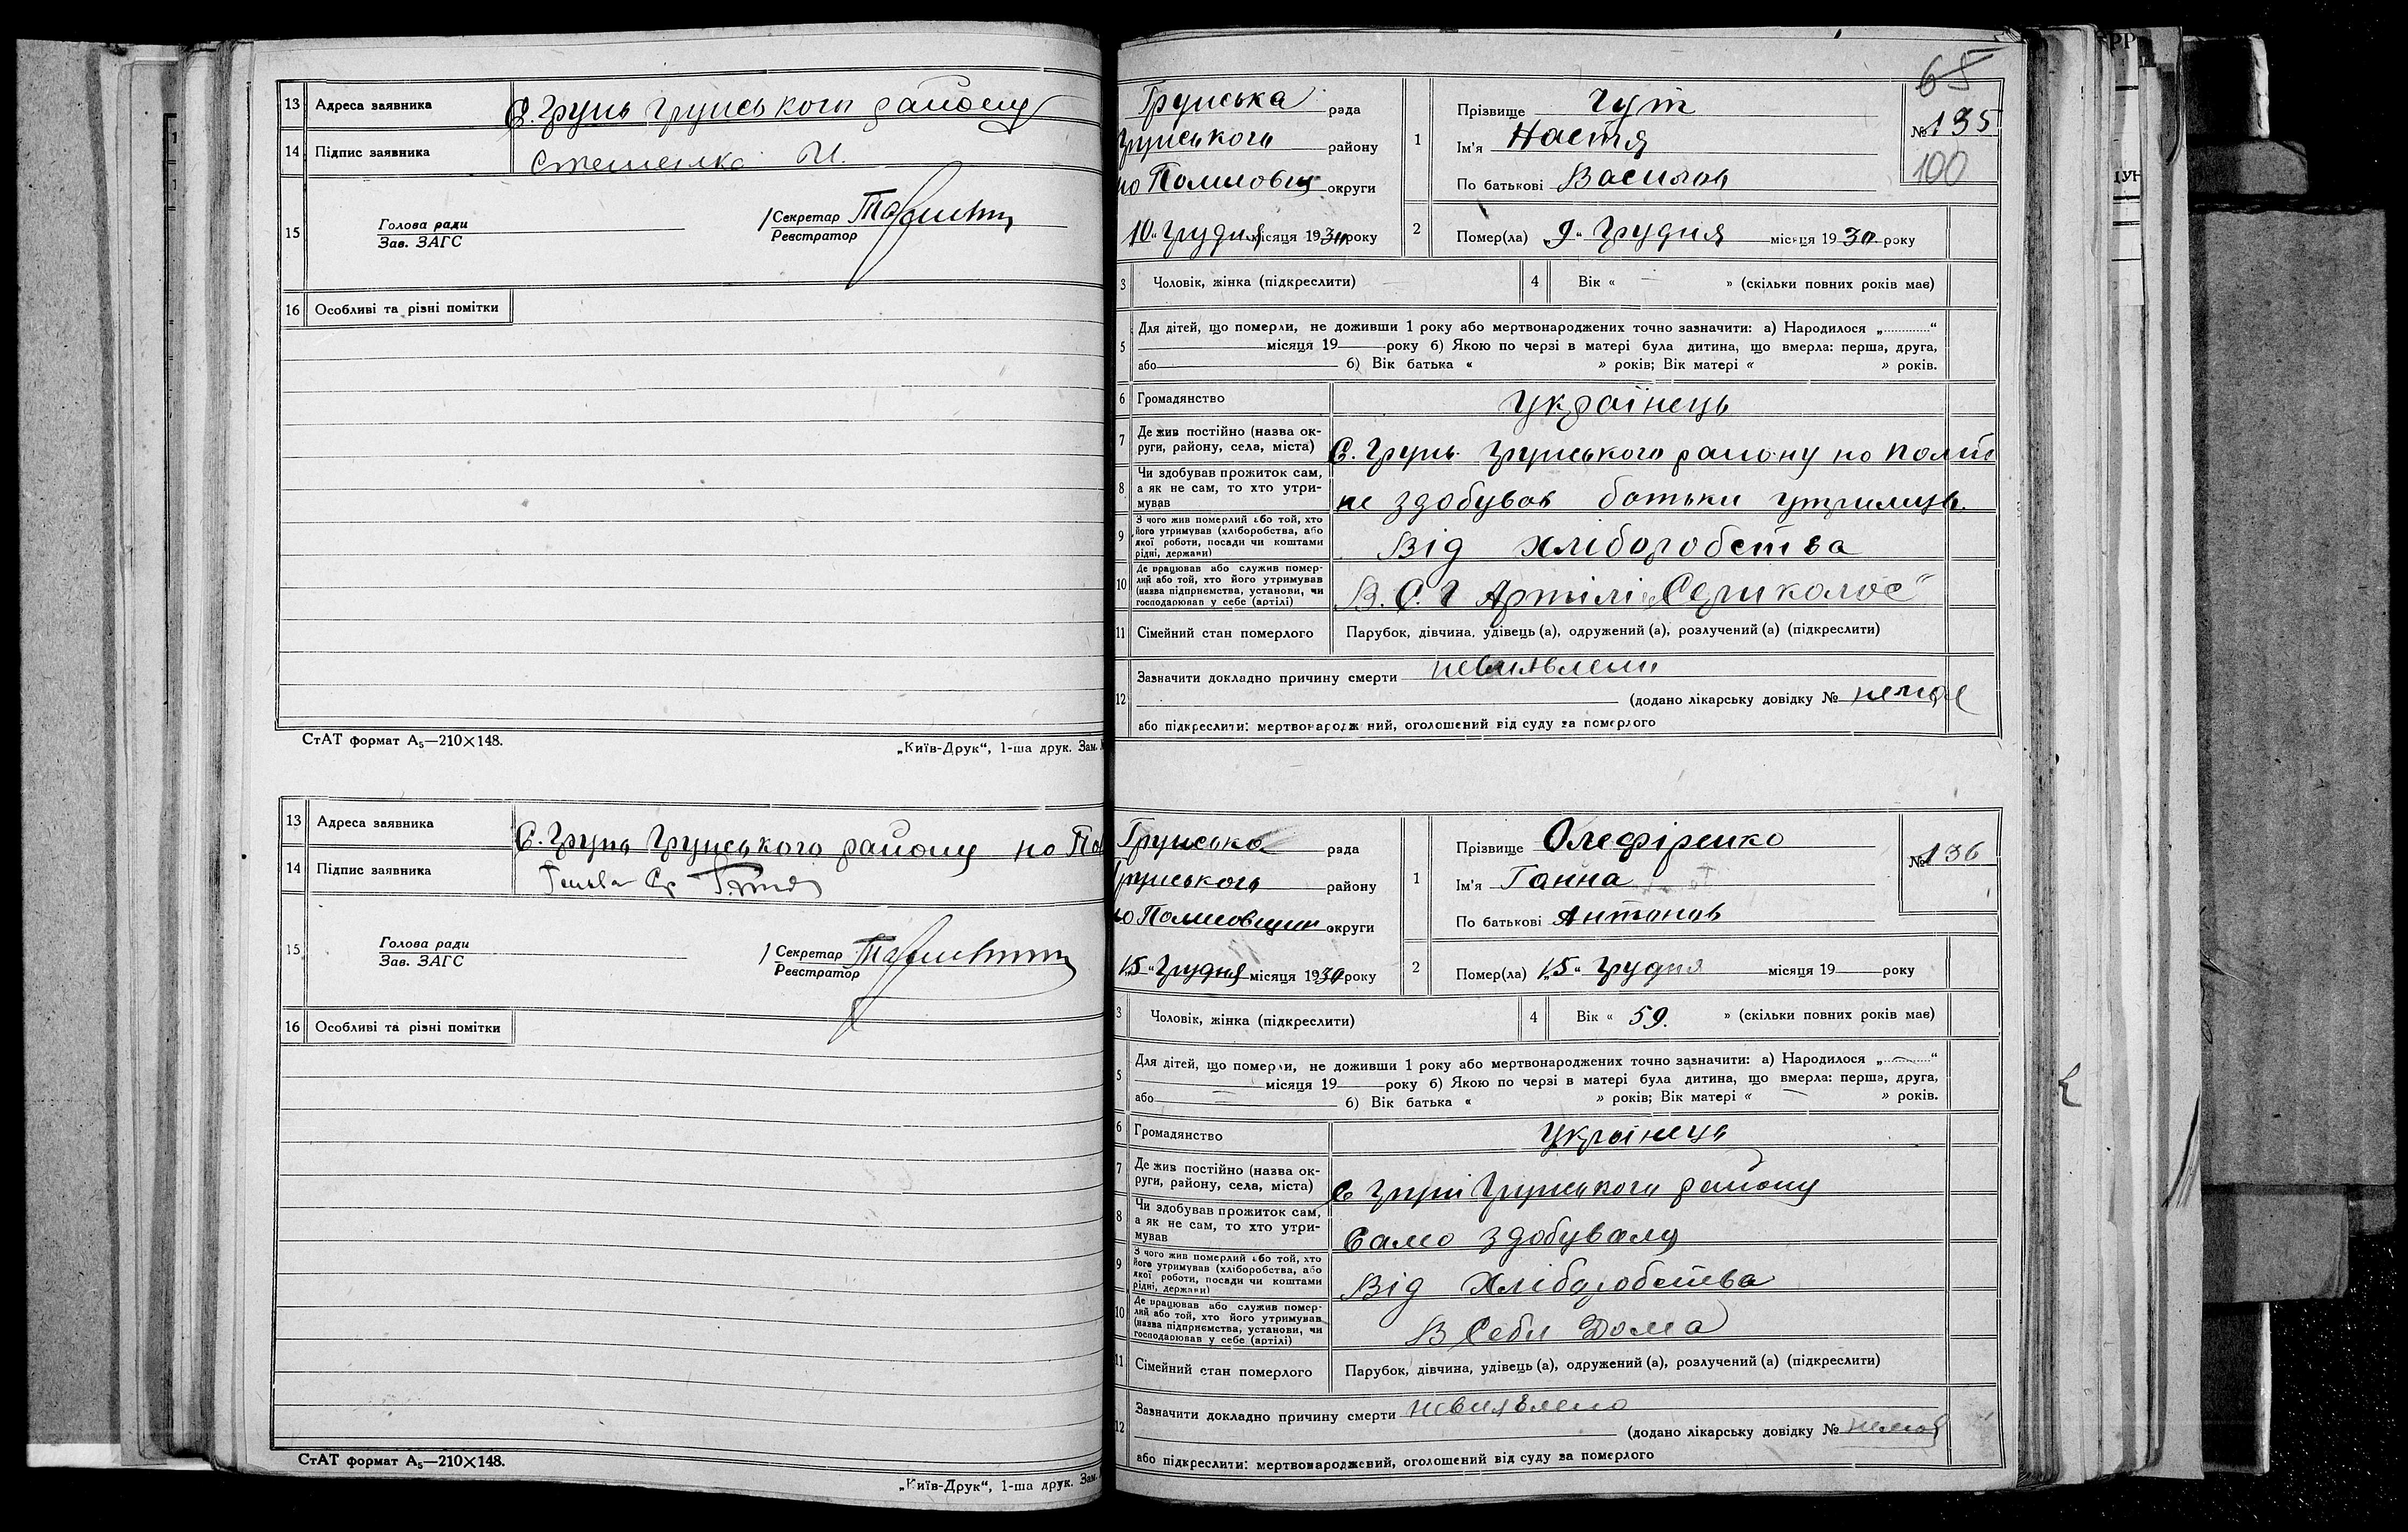 13 Адреса заявника С. Грунь Грунського району
14 Підпис заявника Стешенко И.
15 Голова ради
Зав. ЗАГС
Секретар
Реєстратор
16 Особливі та різні помітки
СтАТ формат А5—210×148.
„Київ-Друк“, 1-ша друк. Зам.
13 Адреса заявника С. Грунь Грунського району по По
14 Підпис заявника
15 Голова ради
Зав. ЗАГС
Секретар
Реєстратор
16 Особливі та різні помітки
СтАТ формат А5—210×148.
„Київ-Друк“, 1-ша друк. Зам.
65
Грунська рада
Грунського району
по округи
„10“ Грудня місяця 1930 року
1 Прізвище Гут
Ім'я Настя
По батькові Василов
№ 135
100
2 Помер(ла) „9“ Грудня місяця 1930 року
3 Чоловік, жінка (підкреслити)
4 Вік « — » (скільки повних років має)
5 Для дітей, що померли, не доживши 1 року або мертвонароджених точно зазначити: а) Народилося „.............“
місяця 19 року б) Якою по черзі в матері була дитина, що вмерла: перша, друга,
або б) Вік батька « » років; Вік матері « » років.
6 Громадянство Українець
7 Де жив постійно (назва ок-
руги, району, села, міста) С. Грунь Грунського району по
8 Чи здобував прожиток сам,
а як не сам, то хто утри-
мував не здобував батьки
9 З чого жив померлий або той, хто
його утримував (хліборобства, або
якої роботи, посади чи коштами
рідні, держави) Від хліборобства
10 Де працював або служив помер-
лий або той, хто його утримував
(назва підприємства, установи, чи
господарював у себе (артілі) В. С. Г Артілі
11 Сімейний стан померлого Парубок, дівчина, удівець (а), одружений (а), розлучений (а) (підкреслити)
12 Зазначити докладно причину смерти невиявлени
(додано лікарську довідку № немає
або підкреслити: мертвонароджений, оголошений від суду за померлого
Грунська рада
Грунського району
по округи
„15“ Грудня місяця 1930 року
1 Прізвище Олефіренко
Ім'я Ганна
По батькові Антонов
№ 136
2 Помер(ла) „15“ Грудня місяця 19 року
3 Чоловік, жінка (підкреслити)
4 Вік « 59. » (скільки повних років має)
5 Для дітей, що померли, не доживши 1 року або мертвонароджених точно зазначити: а) Народилося „.............“
місяця 19 року б) Якою по черзі в матері була дитина, що вмерла: перша, друга,
або б) Вік батька « » років; Вік матері « » років.
6 Громадянство Українець
7 Де жив постійно (назва ок-
руги, району, села, міста) С Груні Грунського району
8 Чи здобував прожиток сам,
а як не сам, то хто утри-
мував Само здобувала
9 З чого жив померлий або той, хто
його утримував (хліборобства, або
якої роботи, посади чи коштами
рідні, держави) Від Хліборобства
10 Де працював або служив помер-
лий або той, хто його утримував
(назва підприємства, установи, чи
господарював у себе (артілі) В Себи Дома
11 Сімейний стан померлого Парубок, дівчина, удівець (а), одружений (а), розлучений (а) (підкреслити)
12 Зазначити докладно причину смерти невиявлено
(додано лікарську довідку № немає
або підкреслити: мертвонароджений, оголошений від суду за померлого